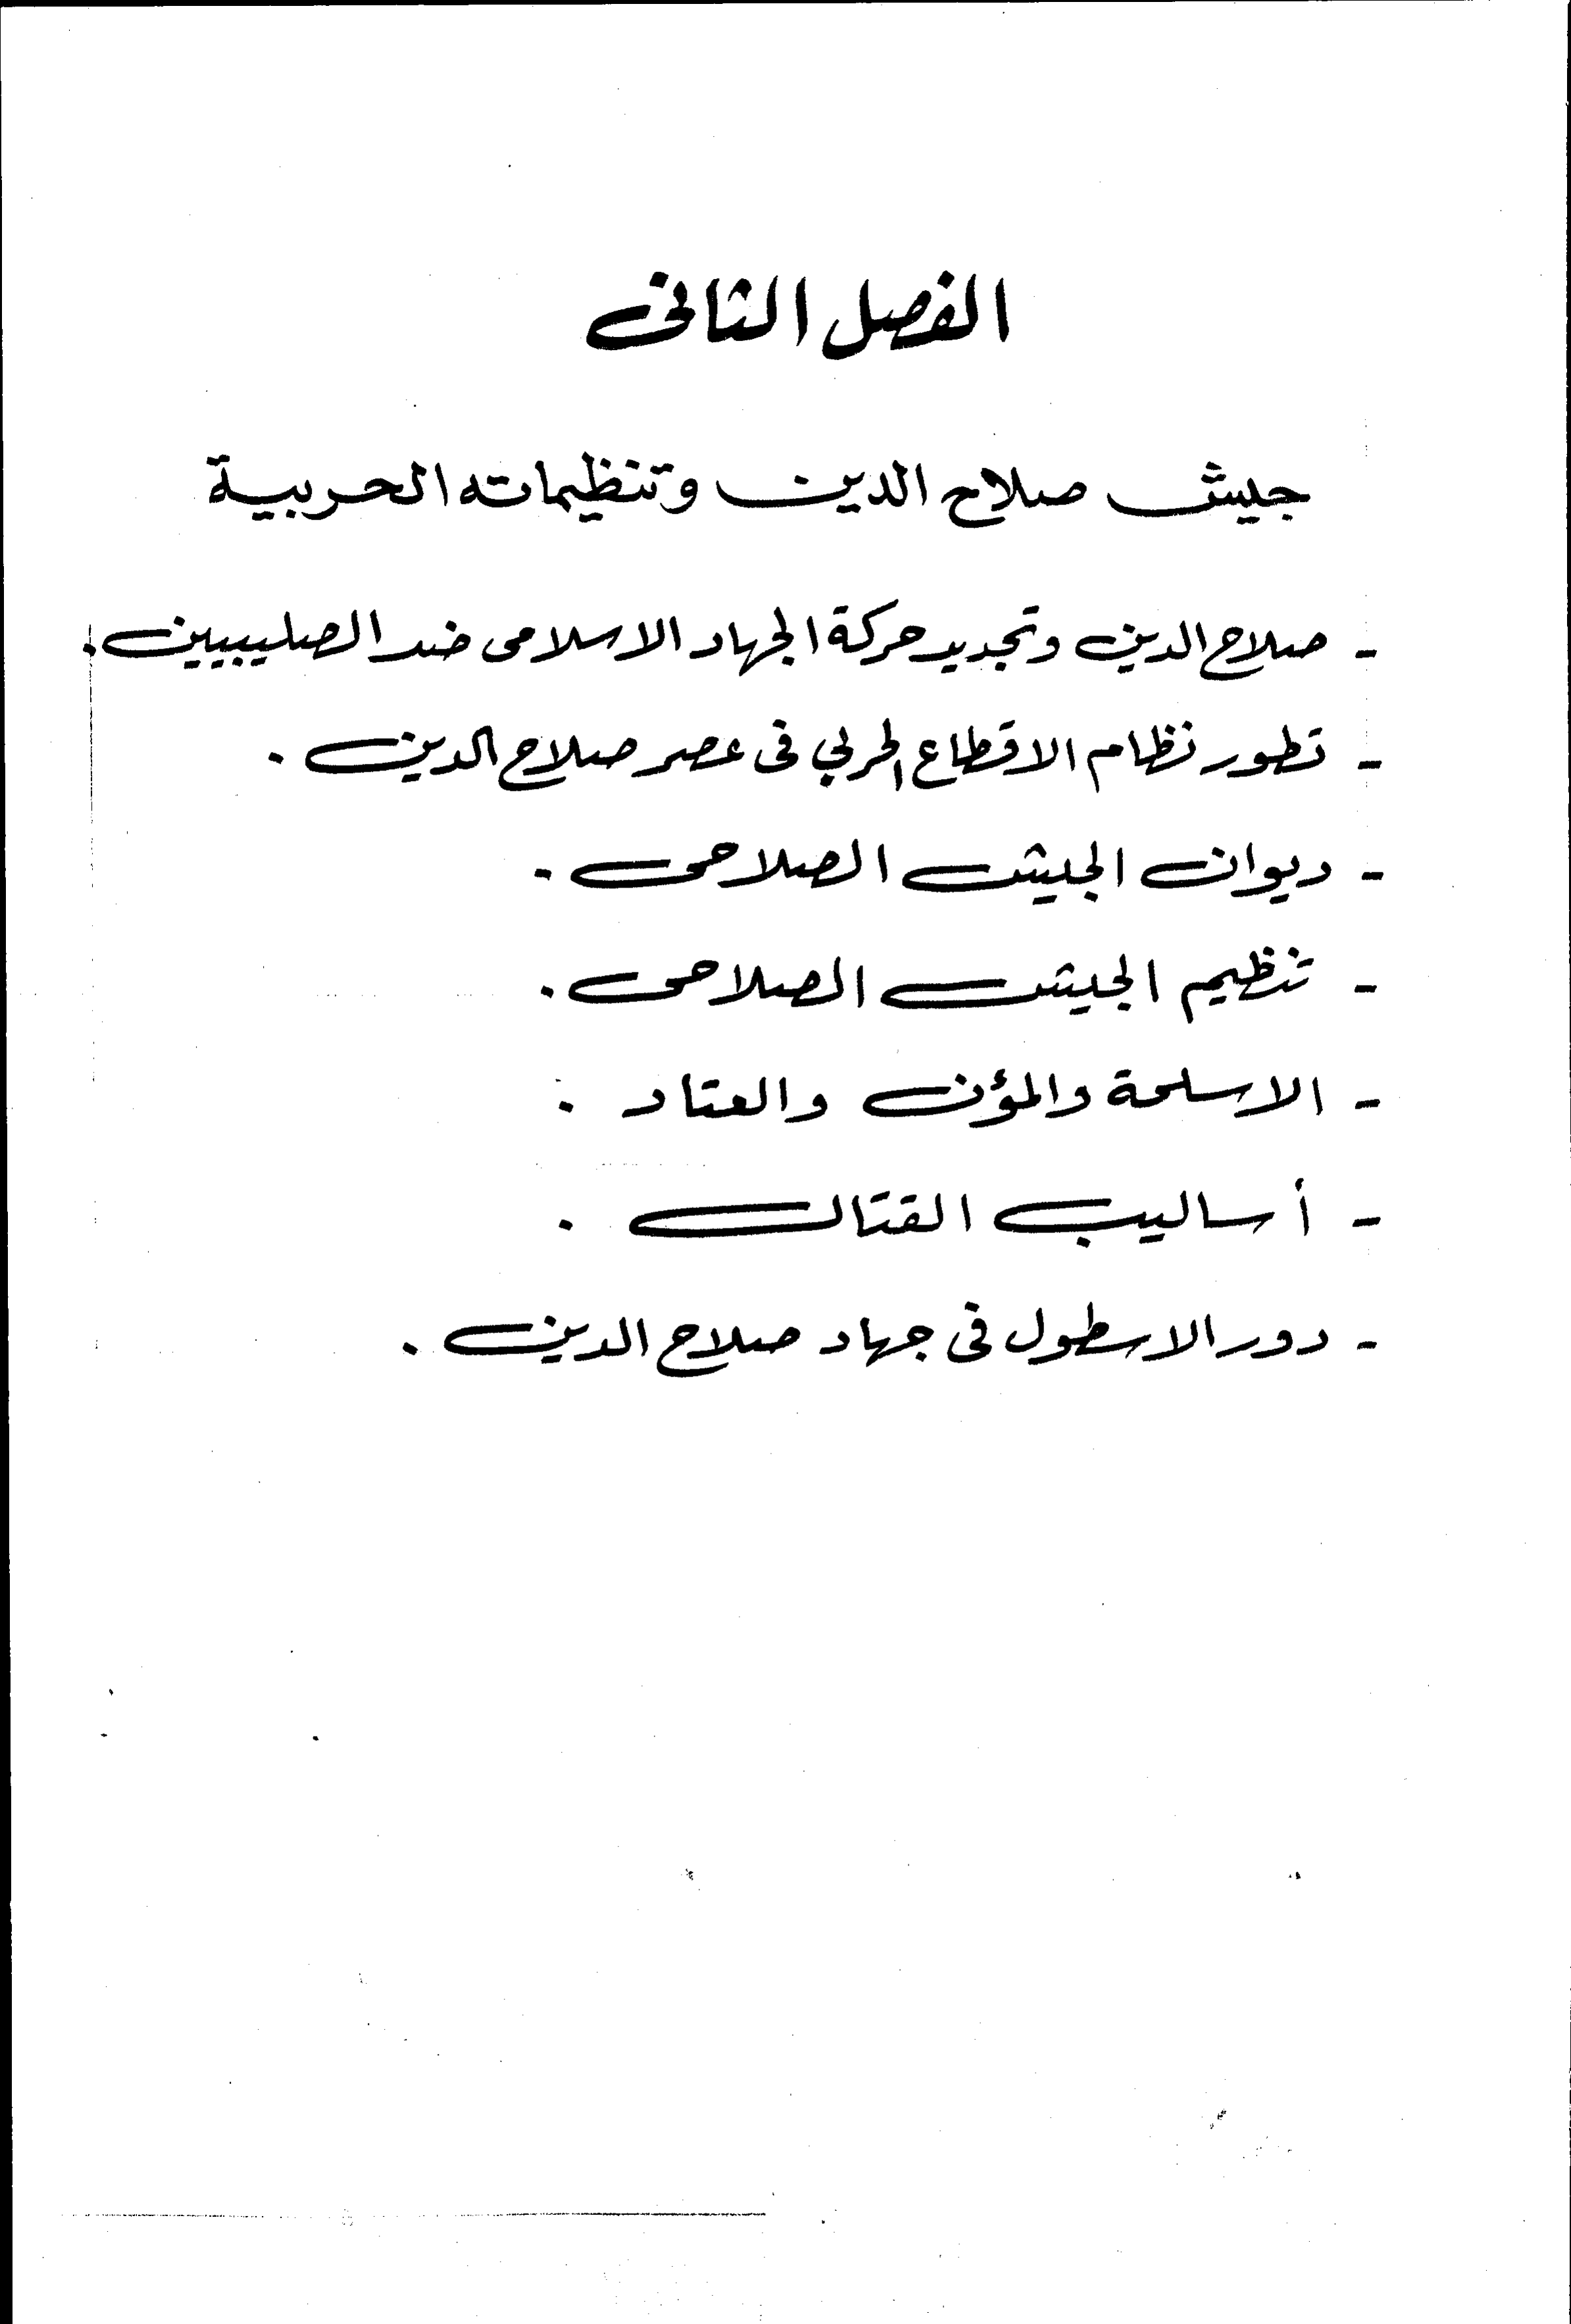 الفصل الثانى
جيش صلاح الدين وتنظيماته الحربية
- صلاح الدين وتجديد حركة الجهاد الاسلامى ضد الصليبيين .
- تطور نظام الاقطاع الحربي فى عصر صلاح الدين .
- ديوان الجيش الصلاحى .
- تنظيم الجيش الصلاحى .
- الاسلحة والمؤن والعتاد .
- أساليب القتال .
- دور الاسطول فى جهاد صلاح الدين .